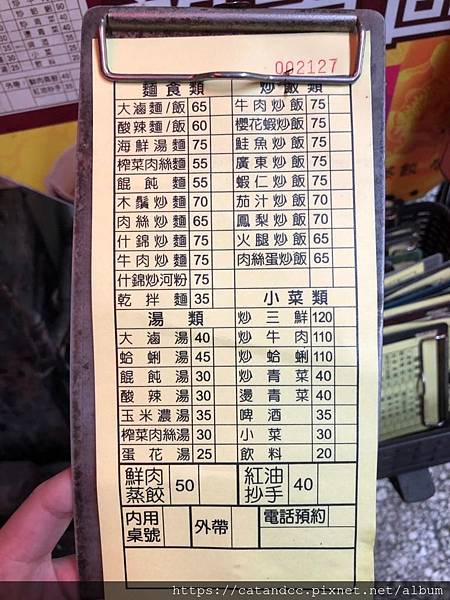 002127
麵食類
大滷麵/飯 65
酸辣麵/飯 60
海鮮湯麵 75
榨菜肉絲麵 55
餛飩麵 55
木鬚炒麵 70
肉絲炒麵 65
什錦炒麵 75
牛肉炒麵 75
什錦炒河粉 75
乾拌麵 35
炒飯類
牛肉炒飯 75
櫻花蝦炒飯 75
鮭魚炒飯 75
廣東炒飯 75
蝦仁炒飯 75
茄汁炒飯 70
鳳梨炒飯 70
火腿炒飯 65
肉絲蛋炒飯 65
湯類
大滷湯 40
蛤蜊湯 45
餛飩湯 30
酸辣湯 30
玉米濃湯 35
榨菜肉絲湯 30
蛋花湯 25
小菜類
炒三鮮 120
炒牛肉 110
炒蛤蜊 110
炒青菜 40
燙青菜 40
啤酒 35
小菜 30
飲料 20
鮮肉蒸餃 50
紅油抄手 40
內用桌號
外帶
電話預約
https://catandcc.pixnet.net/album